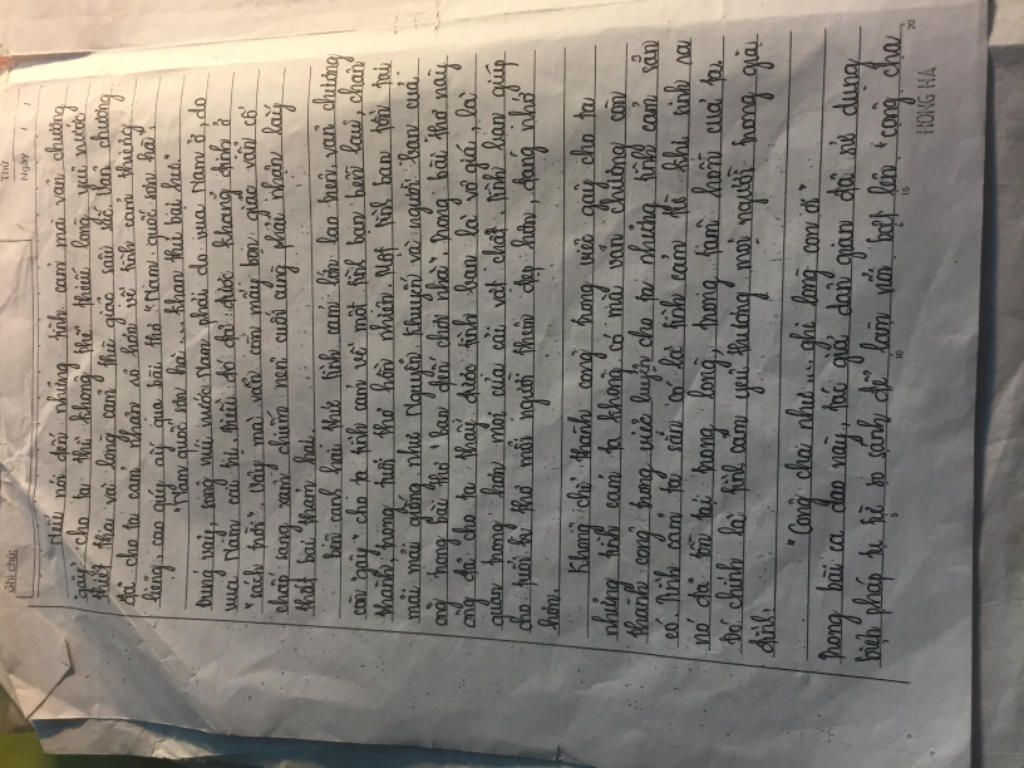 Thứ
Ngày
Ghi chú
Khi nói đến những tình cảm mà văn chương
"gây" cho ta thì không thể thiếu lòng yêu nước
thiết tha và lòng căm thù giặc sâu sắc. Văn chương
đã cho ta cảm nhận rõ hơn về tình cảm thiêng
liêng, cao quý ấy qua bài thơ "Nam quốc sơn hà".
"Nam quốc sơn hà... khan thủ bại hư."
Đúng vậy, sông núi nước Nam phải do vua Nam ở, do
vua Nam cai trị. Điều đó đã được khẳng định ở
"sách trời". Vậy mà vẫn còn mấy bọn giặc vẫn cố
chấp sang xâm chiếm nên cuối cùng phải nhận lấy
thất bại thảm hại.
Bên cạnh bài thơ tình cảm lớn lao trên, văn chương
còn "gây" cho ta tình cảm về một tình bạn bền lâu, chân
thành trong tuổi thơ hồn nhiên. Một tình bạn tồn tại
mãi mãi giống như Nguyễn Khuyến và người bạn của
ông trong bài thơ "Bạn đến chơi nhà". Trong bài thơ này
ông đã cho ta thấy được tình bạn là vô giá, là
quan trọng hơn mọi của cải vật chất, tình bạn giúp
cho tuổi ấu thơ mỗi người thêm đẹp hơn, đáng nhớ
hơn.
Không chỉ thành công trong việc gây cho ta
những tình cảm ta không có mà văn chương còn
thành công trong việc luyện cho ta những tình cảm sẵn
có. Tình cảm ta sẵn có là tình cảm từ khi sinh ra
nó đã tồn tại trong lòng, trong tâm hồn của ta.
Đó chính là tình cảm yêu thương mọi người trong gia
đình.
"Công cha như... ghi lòng con ơi"
Trong bài ca dao này, tác giả dân gian đã sử dụng
biện pháp tu từ so sánh để làm nổi bật lên "công cha
5
10
15
20
HONG HA